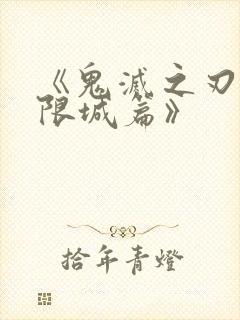 《鬼滅之刃
限城篇》
拾年青燈